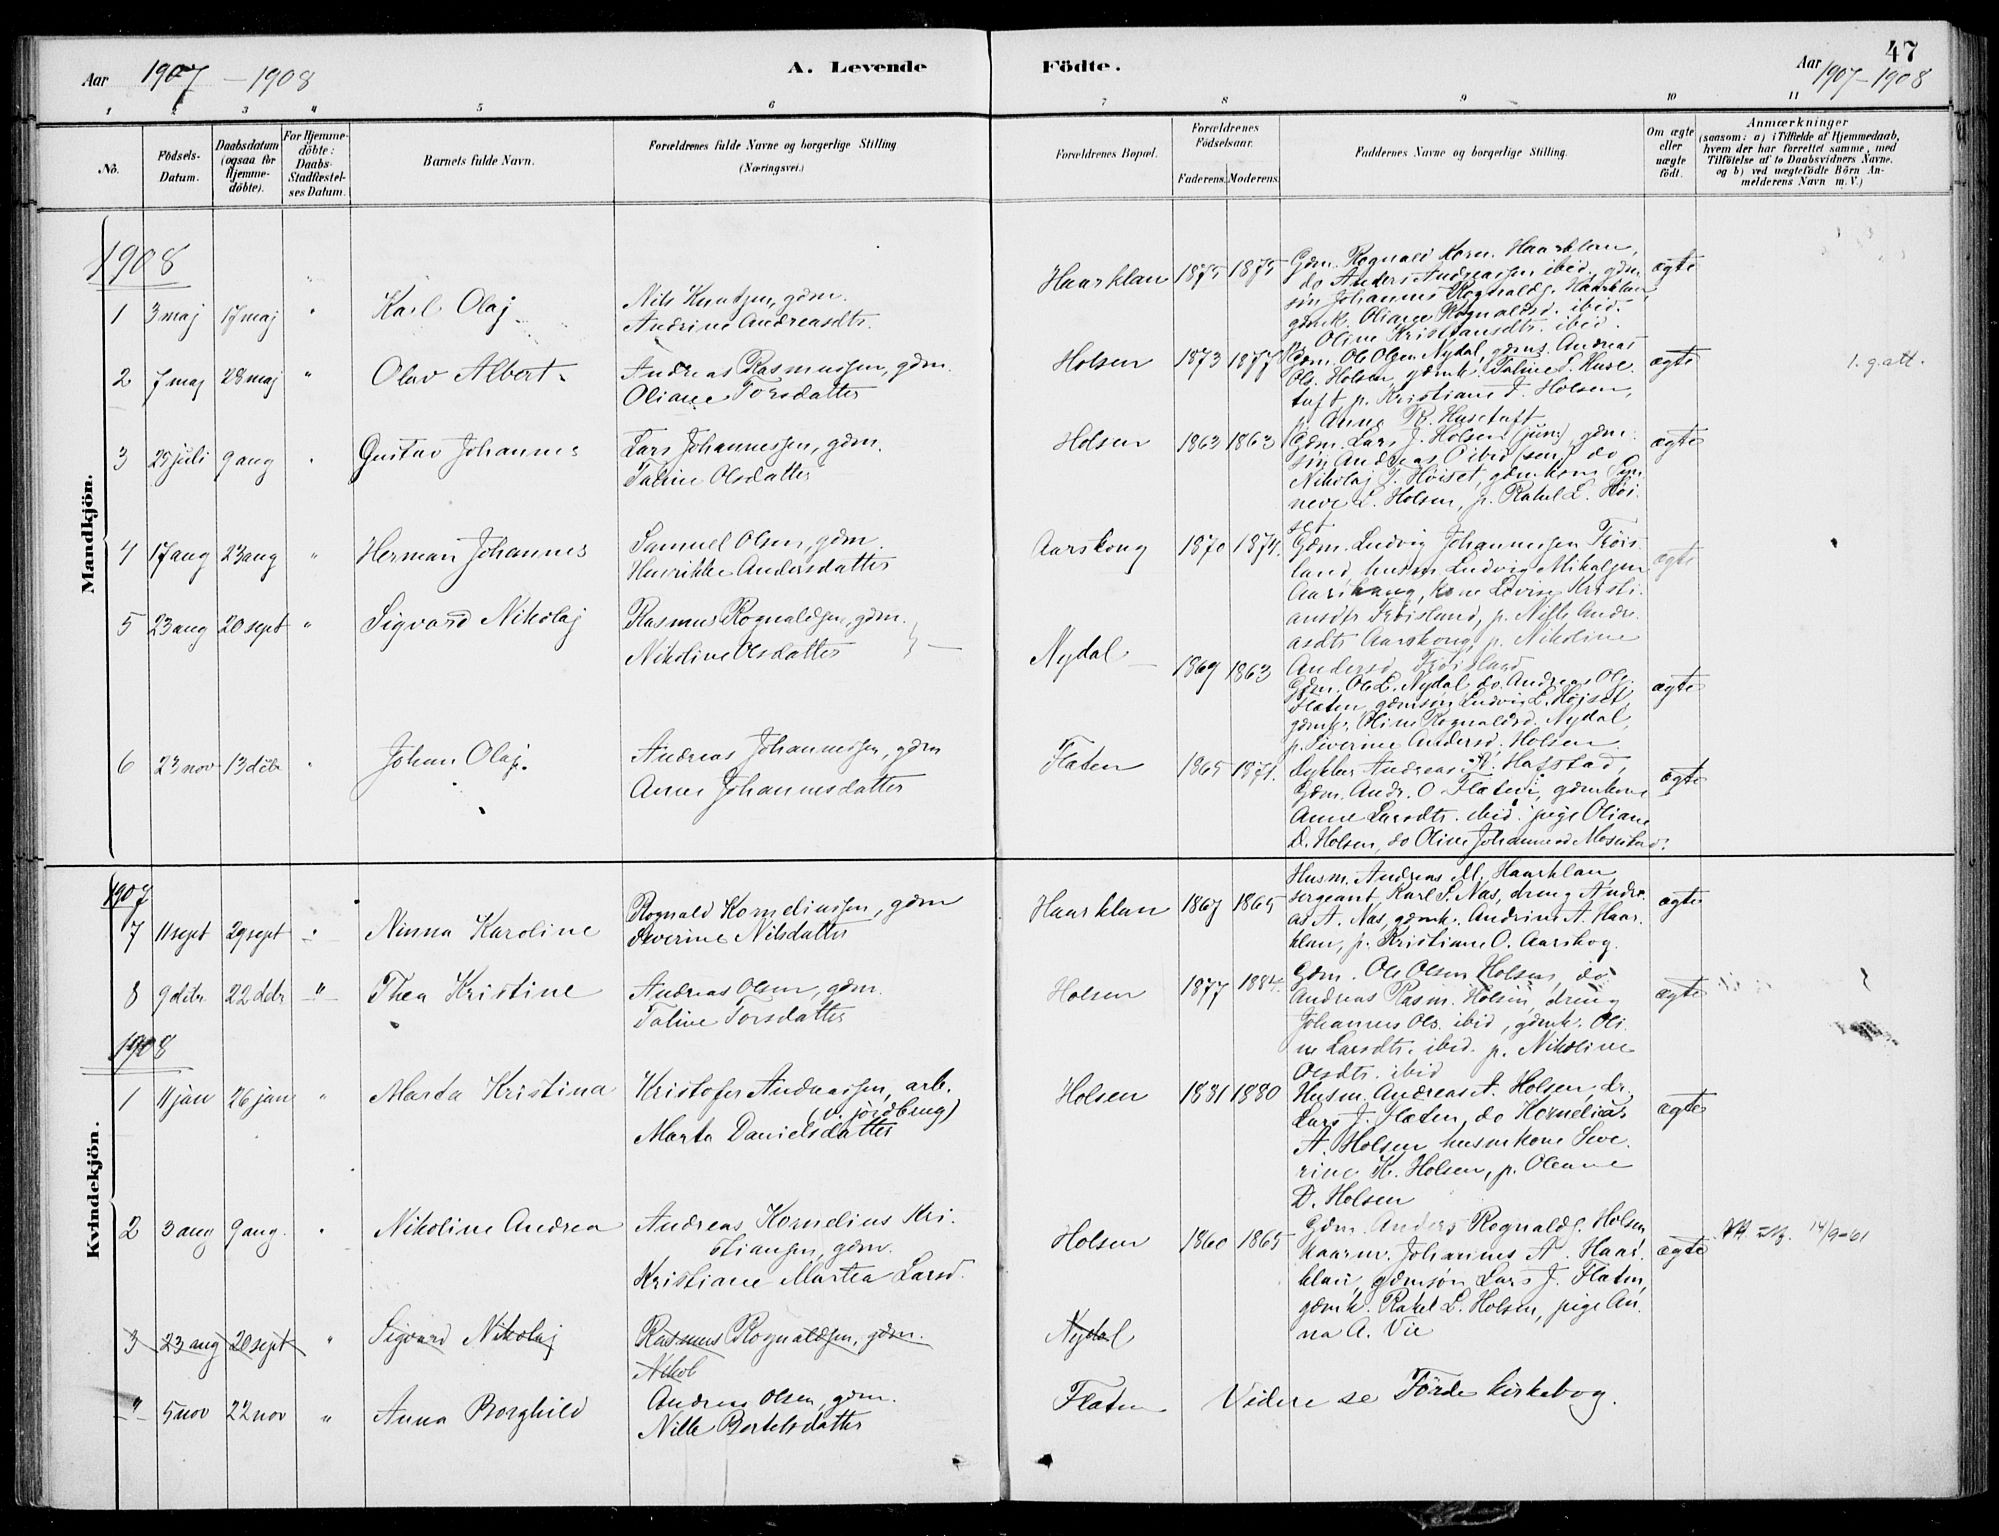 47
Aar 1907 – 1908 A. Levende Födte. Aar 1907–1908
1 2 3 4 5 6 7 8 9 10 11
No. Födsels-Datum. Daabsdatum (ogsaa for Hjemme-döbte). For Hjemme-döbte: Daabs-Stadfæstel-ses Datum. Barnets fulde Navn. Forældrenes fulde Navne og borgerlige Stilling (Næringsvei.) Forældrenes Bopæl. Forældrenes Födselsaar. Faderens. Moderens. Faddernes Navne og borgerlige Stilling. Om ægte eller uægte födt. Anmærkninger (saasom: a) i Tilfælde af Hjemmedaab, hvem der har forrettet samme, med Tilföielse af to Daabsvidners Navne. og b) ved uægtefödte Börn An-melderens Navn m. V.)
Mandkjön.
1908
1 3 maj 17 maj " Karl Olaf Nils Knutsen, gdm.
Andrine Andreasdtr.
Haarklau 1875 1875 Gdm. Rognald Korn. Haarklau,
do Anders Andreassen ibid. gdm
søn Johannes Rognalds. Haarklau,
gdmk. Oliane Rognaldsd. ibid.
p. Oline Kristiansdtr. ibid.
ægte
2 7 maj 28 maj " Olav Albert Andreas Rasmussen, gdm.
Oliane Torsdatter
Holsen 1873 1877 Gdm. Ole Olsen Nydal, gdms. Andreas
Ols. Holsen, gdmk. Taline S. Huse
tuft p. Kristiane D. Holsen,
p. Anna R. Husetuft
ægte 1. g. att.
3 25 juli 9 aug " Gustav Johannes Lars Johannessen, gdm.
Taline Olsdatter
Holsen 1863 1863 Gdm. Lars J. Holsen (jun.), gdm
søn Andreas O ibid (sen.) do
Nikolaj J. Høiset, gdmkone Gun
neve L. Holsen, p. Rakel L. Høi
set
ægte
4 17 aug 23 aug " Herman Johannes Samuel Olsen, gdm.
Henrikke Andersdatter
Aarskoug 1870 1874. Gdm. Ludvig Johannessen Frøis
land, husm Ludvig Mikalsen
Aarskoug, kone Lovise Kristi
ansdtr Frøisland, p. Nille Andre
asdtr Aarskoug p. Nikoline
Andersd. Frøisland
ægte
5 23 aug 20 sept " Sigvard Nikolaj Rasmus Rognaldsen, gdm.
Nikoline Olsdatter
Nydal 1869 1863 Gdm. Ole L. Nydal, do. Andreas Ols.
Flaten, gdmsøn Ludvig L. Høiset,
gdmk. Oline Rognaldsd. Nydal,
p. Siverine Andersd. Holsen
ægte
6 23 nov 13 debr " Johan Olaf. Andreas Johannessen, gdm
Anne Johannesdatter
Flaten 1865 1871. Dykker Andreas R. Hafstad,
Gdm. Andr. O. Flaten, gdmkone
Anne Larsdtr. ibid. pige Oliane
D. Holsen, do Oline Johannesd
ægte
Kvindekjön.
1907
7 11 sept 29 sept " Ninna Karoline Rognald Korneliussen, gdm
Severine Nilsdatter
Haarklau 1867 1865 Husm. Andreas M. Haarklau,
sergeant, Karl S. Nas, dreng Andre
as A. Nas, gdmk. Andrine A. Haar
klau, p. Kristiane O. Aarskog.
ægte
8 9 debr 22 debr " Thea Kristine Andreas Olsen, gdm.
Taline Torsdatter
Holsen 1877 1884. Gdm. Ole Olsen Holsen, do
Andreas Rasm. Holsen, dreng
Johannes Ols. ibid, gdmk. Oli
ne Larsdtr. ibid. p. Nikoline
Olsdtr. ibid
ægte
1908
1 11 jan 26 jan " Marta Kristina Kristofer Andreassen, arb.
(v. jordbrug)
Marta Danielsdatter
Holsen 1881 1880 Husm. Andreas A. Holsen, dr.
Lars J. Flaten, do Kornelius
A. Holsen, husmkone Seve
rine K. Holsen, p. Oleane
D. Holsen
ægte
2 3 aug 9 aug. " Nikoline Andrea Andreas Kornelius Kri
stiansen, gdm.
Kristiane Martea Larsd.
Holsen 1860 1865 Gdm. Anders Rognalds. Holsen,
kaarm. Johannes A. Haar
klau, gdmsøn Lars J. Flaten,
gdmk. Rakel L. Holsen, pige An
na A. Vie
ægte 14/9-61
3 23 aug 20 sept " Sigvard Nikolaj Rasmus Rognaldsen, gdm.
Nikol
Nydal
" 5 nov 22 nov " Anna Borghild Andreas Olsen, gdm.
Nille Bertelsdatter
Flaten Videre se Förde kirkebog.